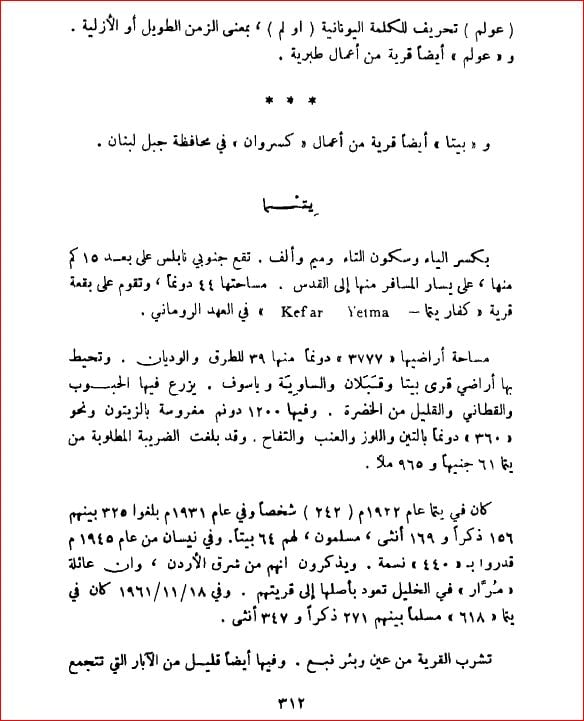 ( عولم ) تحريف للكلمة اليونانية ( او لم ) ، بمعنى الزمن الطويل أو الأزلية .
و « عولم » أيضاً قرية من أعمال طبرية .
* * *
و « بيتا » أيضاً قرية من أعمال « كسروان » في محافظة جبل لبنان .
يتما
بكسر الياء وسكون التاء وميم وألف . تقع جنوبي نابلس على بعد ١٥ كم
منها ، على يسار المسافر منها إلى القدس . مساحتها ٤٤ دونماً ، وتقوم على بقعة
قرية « كفار يتما – Kefar Yetma » في العهد الروماني .
مساحة أراضيها « ٣٧٧٧ » دونماً منها ٣٩ للطرق والوديان . وتحيط
بها أراضي قرى بيتا وقَبَلان والساوِيَة وياسوف . يزرع فيها الحبوب
والقطاني والقليل من الخضرة . وفيها ١٢٠٠ دونم مغروسة بالزيتون ونحو
« ٣٦٠ » دونماً بالتين واللوز والعنب والتفاح . وقد بلغت الضريبة المطلوبة من
يتما ٦١ جنيهاً و ٩٦٥ ملاً .
كان في يتما عام ١٩٢٢م ( ٢٤٢ ) شخصاً وفي عام ١٩٣١م بلغوا ٣٢٥ بينهم
١٥٦ ذكراً و ١٦٩ أنثى ، مسلمون ، لهم ٦٤ بيتاً. وفي نيسان من عام ١٩٤٥ م
قدروا بـ « ٤٤٠ » نسمة . ويذكرون انهم من شرق الأردن ، وان عائلة
« مُرَّار » في الخليل تعود بأصلها إلى قريتهم . وفي ١٩٦١/١١/١٨ كان في
يتما « ٦١٨ » مسلماً بينهم ٢٧١ ذكراً و ٣٤٧ أنثى .
تشرب القرية من عين وبئر نبع . وفيها أيضاً قليل من الآبار التي تتجمع
٣١٢